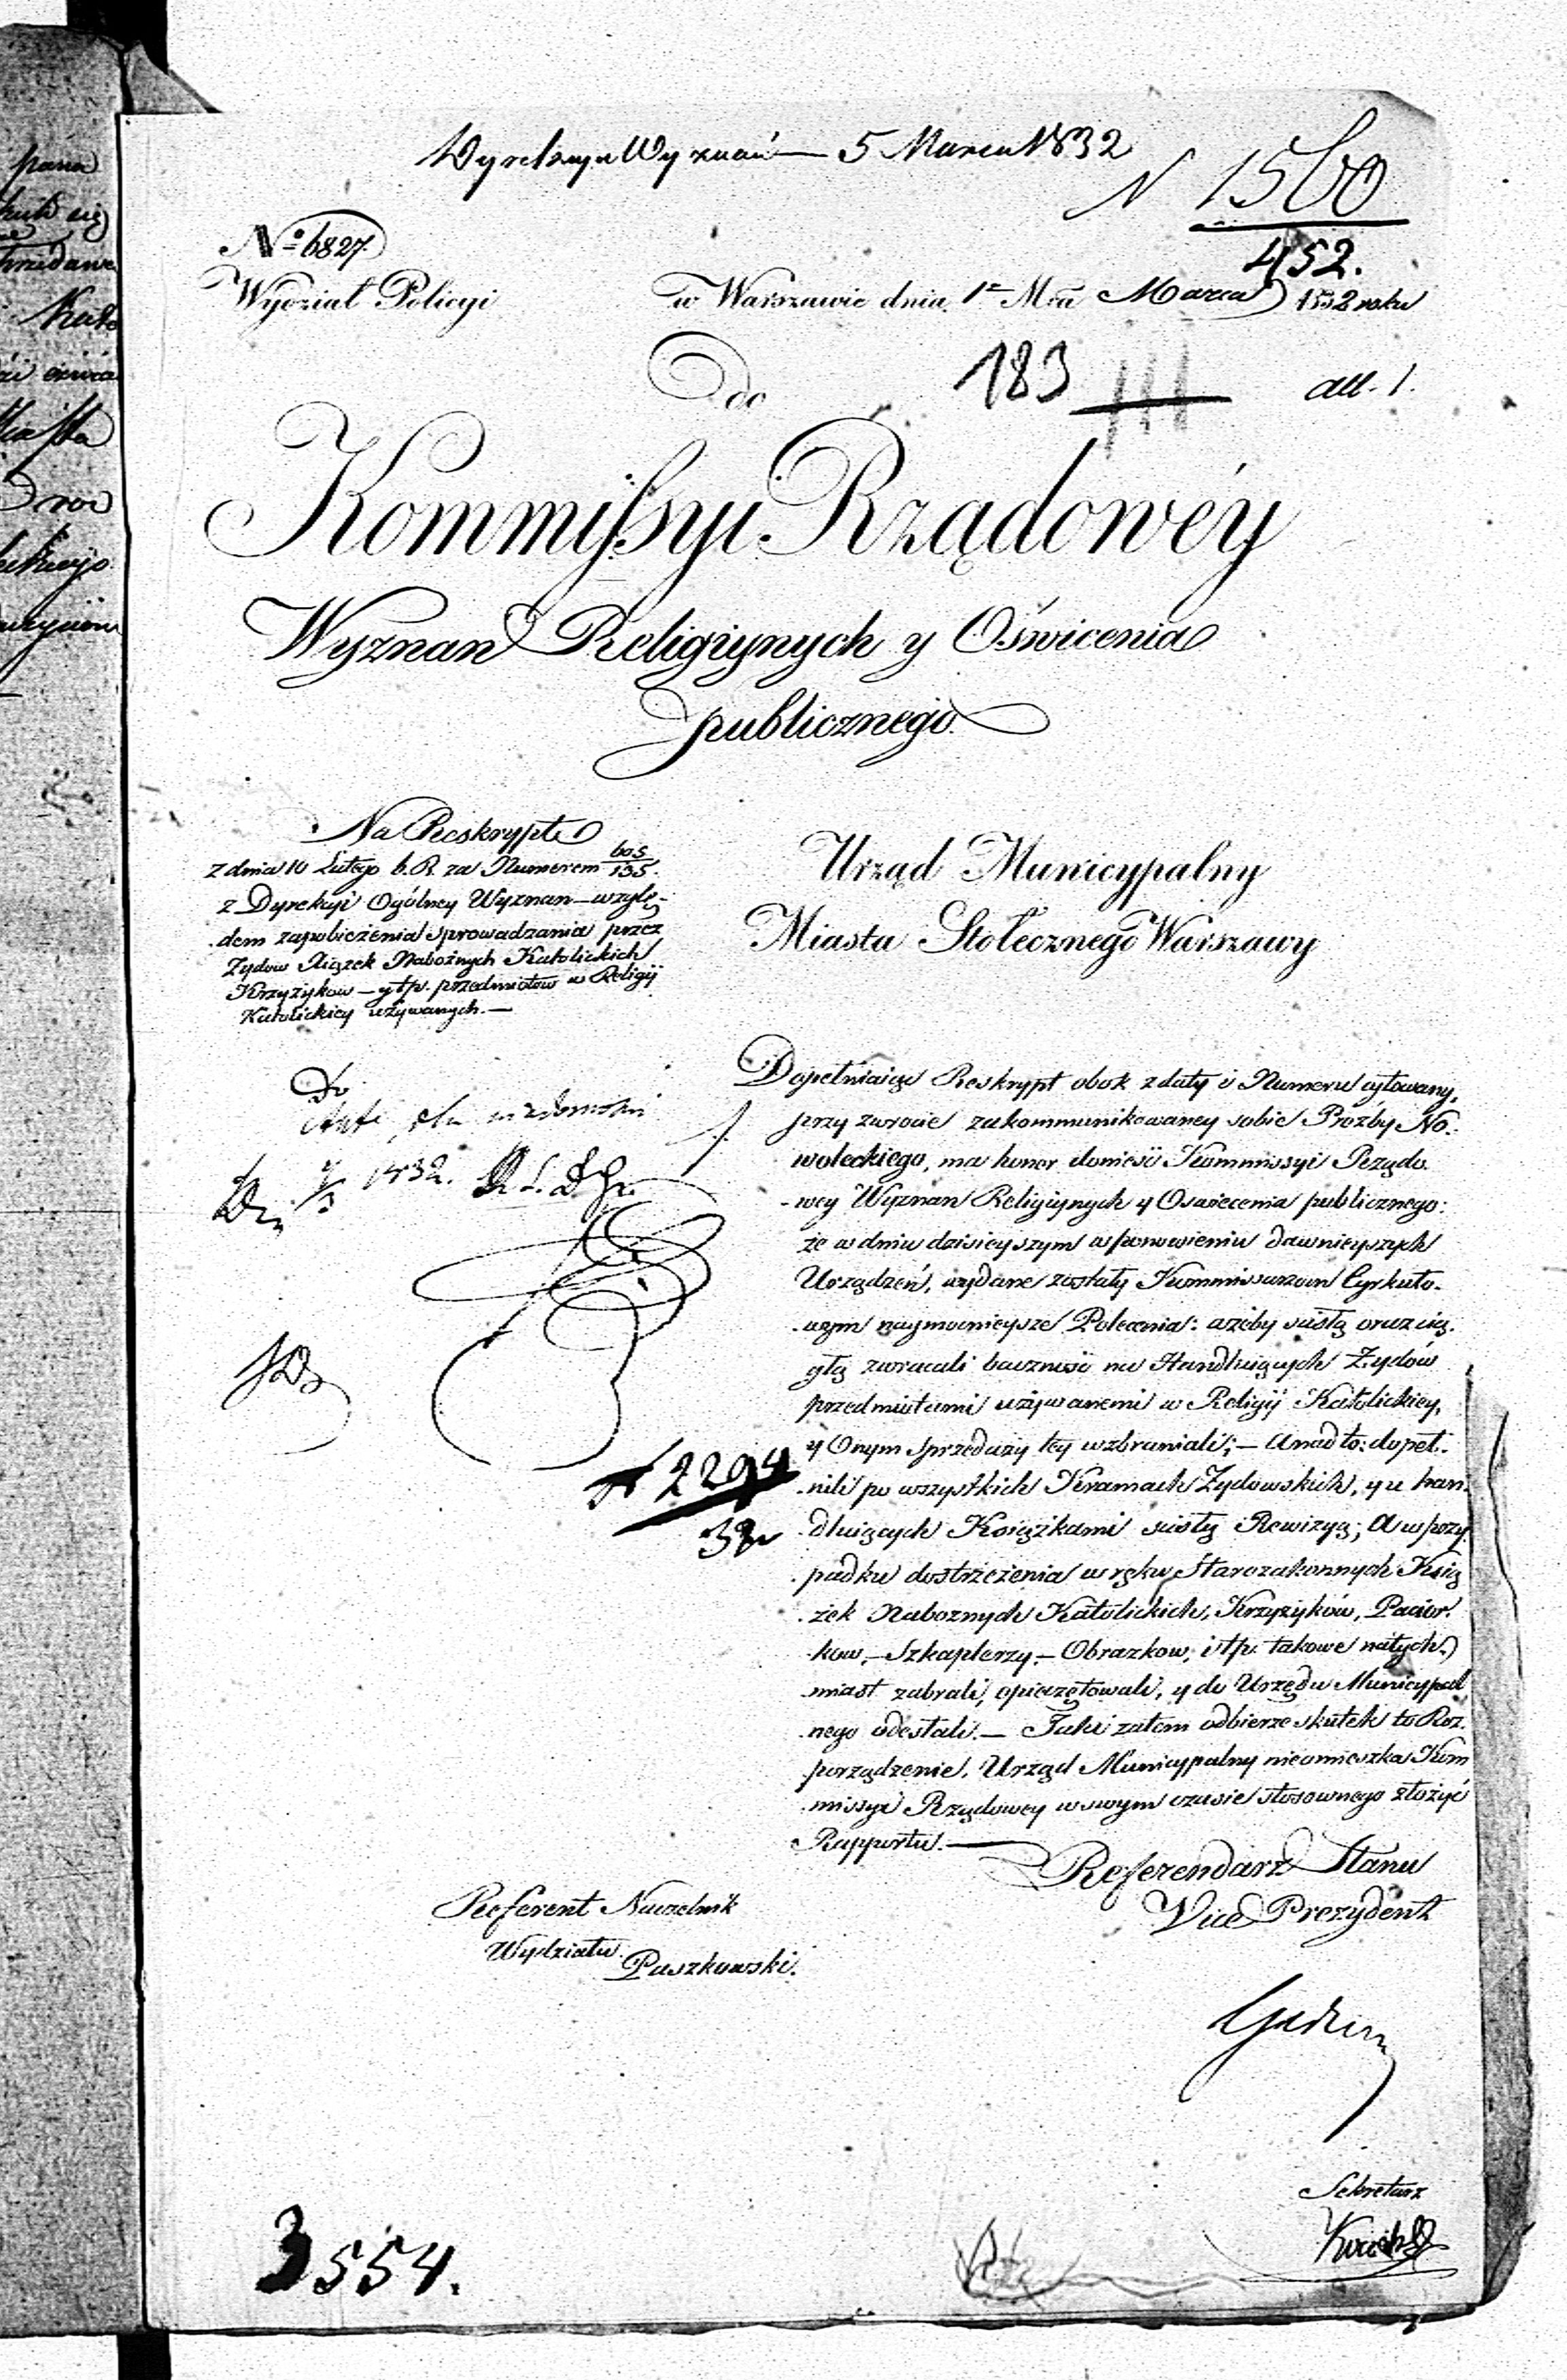 Wyznań 5 Marca 1832
N 1560
452.
No 6827
Wydział Policyi
w Warszawie dnia 1 Mca Marca 1832 roku
Do
183
all. 1.
Kommissyi Rządowéy
Wyznan Religiynych y Oświcenia
publicznego.
Na Reskrypt
z dnia 10 Lutego b. R. za Numerem 603/135.
z Dyrekcyi Ogólney Wyznan – wzglę-
dem zapobieżenia sprowadzania przez
Zydow Xiązek Nabożnych Katolickich
Krzyżykow – y t.p. przedmiotow w Religij
Katolickiey używanych. –
Urząd Municypalny
Miasta Stołecznego Warszawy
Do
Akt dla wiadomości
1832.
N 2294
Dopełniaiąc Reskrypt obok z daty i Numeru cytowany,
przy zwrocie zakommunikowaney sobie Prozby No-
woleckiego, ma honor donieść Kommissyi Rządo-
wey Wyznan Religiynych y Oswiecenia publicznego:
że w dniu dzisieyszym w ponowieniu dawnieyszych
Urządzeń, wydane zostały Kommissarzom Cyrkuło-
wym naymocnieysze Polecenia: ażeby ścisłą oraz cią-
głą zwracali baczność na Handluiących Żydów
przedmiotami używanemi w Religij Katolickiey,
y Onym sprzedaży tey wzbraniali; – A nad to: dopeł-
nili po wszystkich Kramach Zydowskich, y u han-
dluiących Książkami ścisłą Rewizyą; A w przy-
padku dostrzeżenia w ręku Starozakonnych Ksią
żek Naboznych Katolickich, Krzyżyków, Pacior-
kow, – Szkaplerzy, – Obrazkow, i t.p. takowe natych-
miast zabrali, opieczętowali, y do Urzędu Municypal
nego odesłali. – Jaki zatem odbierze skutek to Roz-
porządzenie, Urząd Municypalny nieomieszka Kom
missyi Rządowey w swym czasie stosownego złożyć
Rapportu. –
Referendarz Stanu
Vice Prezydent
Referent Naczelnik
Wydziału
Paszkowski.
Sekretarz
3554.